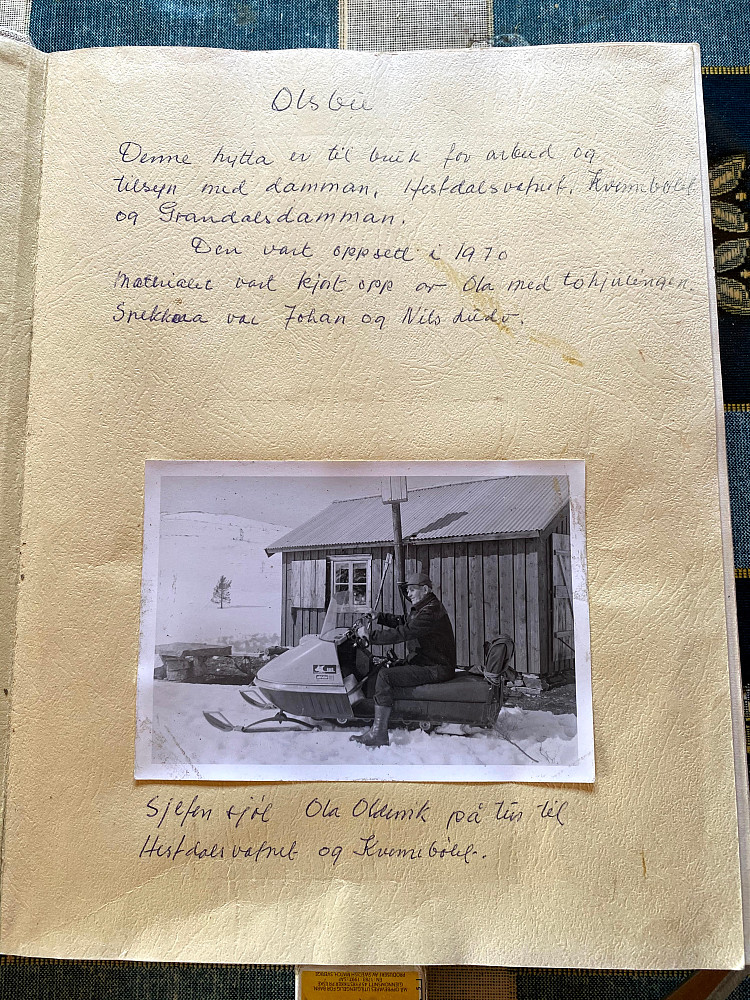 Olsbu
Denne hytta er til bruk for arbeid og
tilsyn med damman, Hestdalsvatnet, Kvennebølet
og Grøndalsdamman.
Den vart oppsett i 1970
Materialet vart kjørt opp av Ola med tohjulingen.
Snekkara var Johan og Nils Ludv.
Sjefen sjøl Ola Oldervik på tur til
Hestdalsvatnet og Kvennebølet.